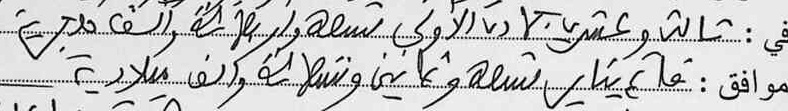 في : ثالث وعشرين جمادى الأولى تسعة وأربعمائة وألف هجرية
موافق : فاتح يناير تسعة وثمانين وتسعمائة وألف ميلادية